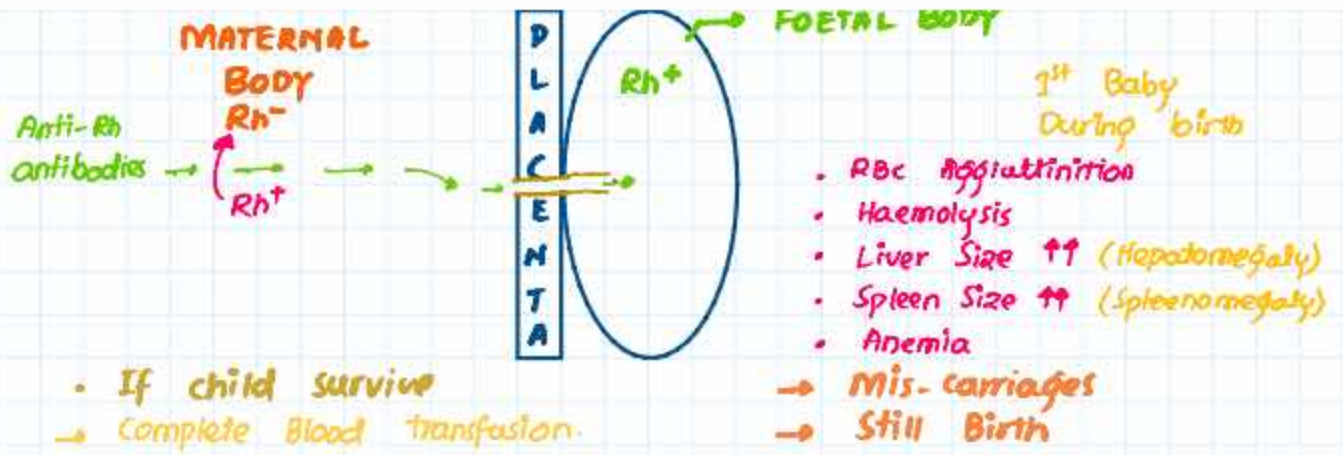 MATERNAL
BODY
Rh-
Anti-Rh
antibodies
Rh+
PLACENTA
FOETAL BODY
Rh+
1st Baby
During birth
• RBC Agglutinition
• Haemolysis
• Liver Size ↑↑ (Hepatomegaly)
• Spleen Size ↑↑ (Spleenomegaly)
• Anemia
→ Mis-carriages
→ Still Birth
• If child survive
→ Complete Blood transfusion